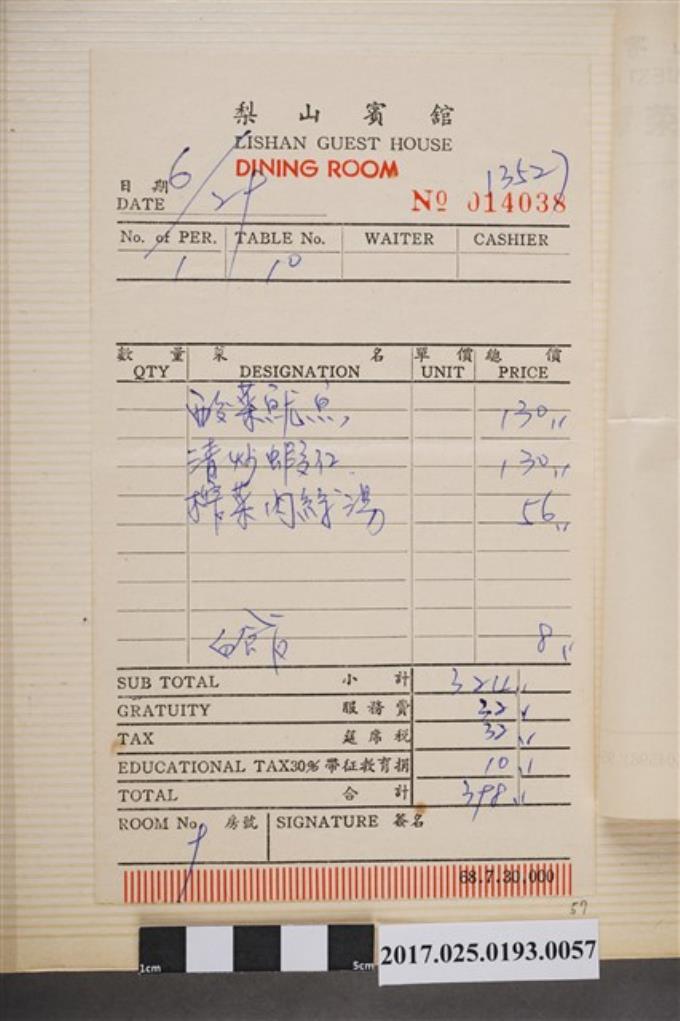 梨山賓舘
LISHAN GUEST HOUSE
DINING ROOM
日期 6/2
DATE
1352)
Nº 014038
No. of PER. TABLE No. WAITER CASHIER
1 10
數量 菜名 單價 總價
QTY DESIGNATION UNIT PRICE
酸菜魷魚 130
清炒蝦仁 130
榨菜肉絲湯 56
白飯 8
SUB TOTAL 小計 324
GRATUITY 服務費 32
TAX 筵席稅 32
EDUCATIONAL TAX30% 帶征教育捐 10
TOTAL 合計 398
ROOM No. 房號 SIGNATURE 簽名
68.7.30,000
57
1cm 5cm
2017.025.0193.0057